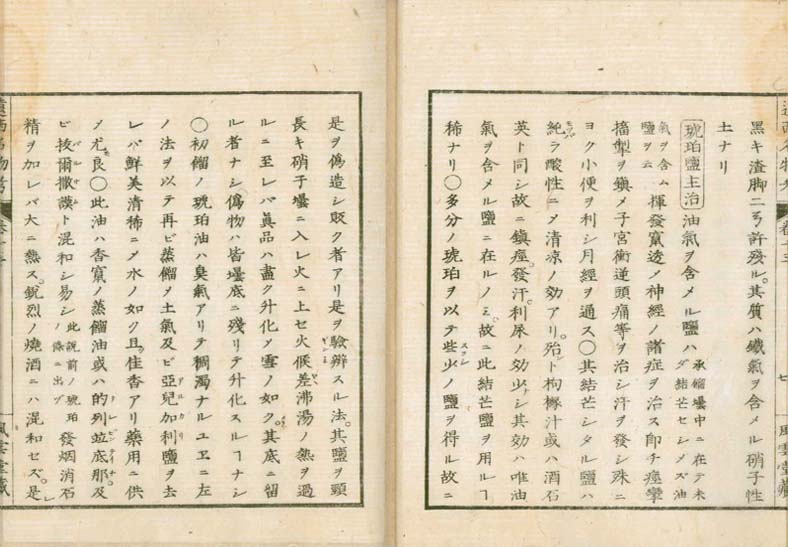 黑キ渣脚ニ弓許殘ル。其質ハ鐵氣ヲ含メル硝子性
土ナリ
琥珀鹽主治 油氣ヲ含メル鹽ハ 承餾壜中ニ在テ未ダ結芒セシメズ油
氣ヲ含ム鹽ヲ云 揮發竄透メ神經ノ諸症ヲ治ス即チ痙攣
搐掣ヲ鎭メ子宮衝逆頭痛等ヲ治シ汗ヲ發シ殊ニ
ヨク小便ヲ利シ月經ヲ通ス〇其結芒シタル鹽ハ
純ラ酸性ニメ清凉ノ効アリ。殆ント枸櫞汁或ハ酒石
英ト同シ故ニ鎭痙。發汗。利尿ノ効少ナシ其効ハ唯油
氣ヲ含メル鹽ニ在ルノミ。故ニ此結芒鹽ヲ用ルヿ
稀ナリ〇多分ノ琥珀ヲ以テ些少ノ鹽ヲ得ル故ニ
七
風雲堂藏
是ヲ僞造シ販ク者アリ是ヲ驗辨スル法。其鹽ヲ頸
長キ硝子壜ニ入レ火ニ上セ火候差沸湯ノ熱ヲ過
ルニ至レバ眞品ハ盡ク升化メ雲ノ如ク。其底ニ留
ル者ナシ僞物ハ皆壜底ニ殘リテ升化スルヿナシ
〇初餾ノ琥珀油ハ臭氣アリテ稠濁ナルユヱニ左
ノ法ヲ以テ再ビ蒸餾メ土氣及ビ亞兒加利鹽ヲ去
レバ鮮美清稀ニメ水ノ如ク且佳香アリ藥用ニ供
メ尤良〇此油ハ香竄ノ蒸餾油或ハ的列並底那。及
ビ拔爾撒謨ト混和シ易シ 此説前ノ琥珀ノ條ニ出ヅ 發烟消石
精ヲ加レバ大ニ熱ス。鋭烈ノ燒酒ニハ混和セズ。是
風雲堂藏